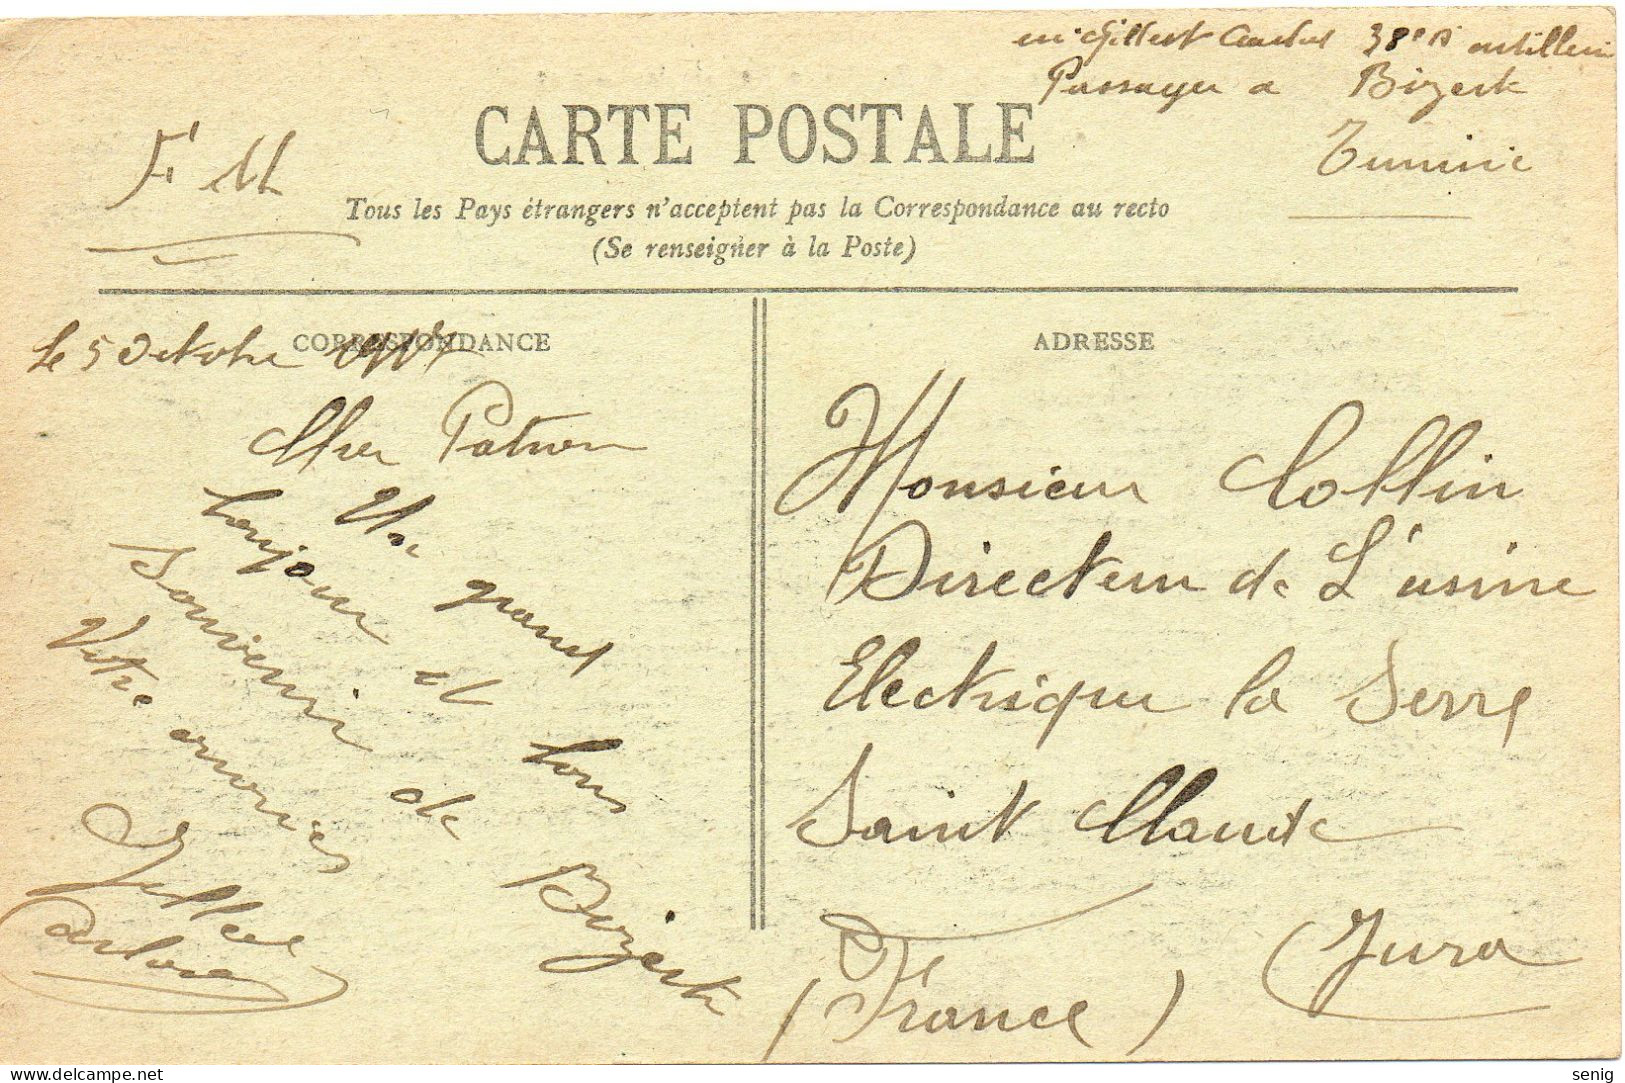 Gilbert 38e artillerie
Passager a Bizerte
Tunisie
F M
CARTE POSTALE
Tous les Pays étrangers n'acceptent pas la Correspondance au recto
(Se renseigner à la Poste)
CORRESPONDANCE
ADRESSE
Le 5 Octobre
Cher Patron
Un grand
bonjour et bons
Souvenir de Bizerte
Votre
Monsieur Collin
Directeur de L'usine
Electrique la Serre
Saint Claude
Jura
(France)
senig